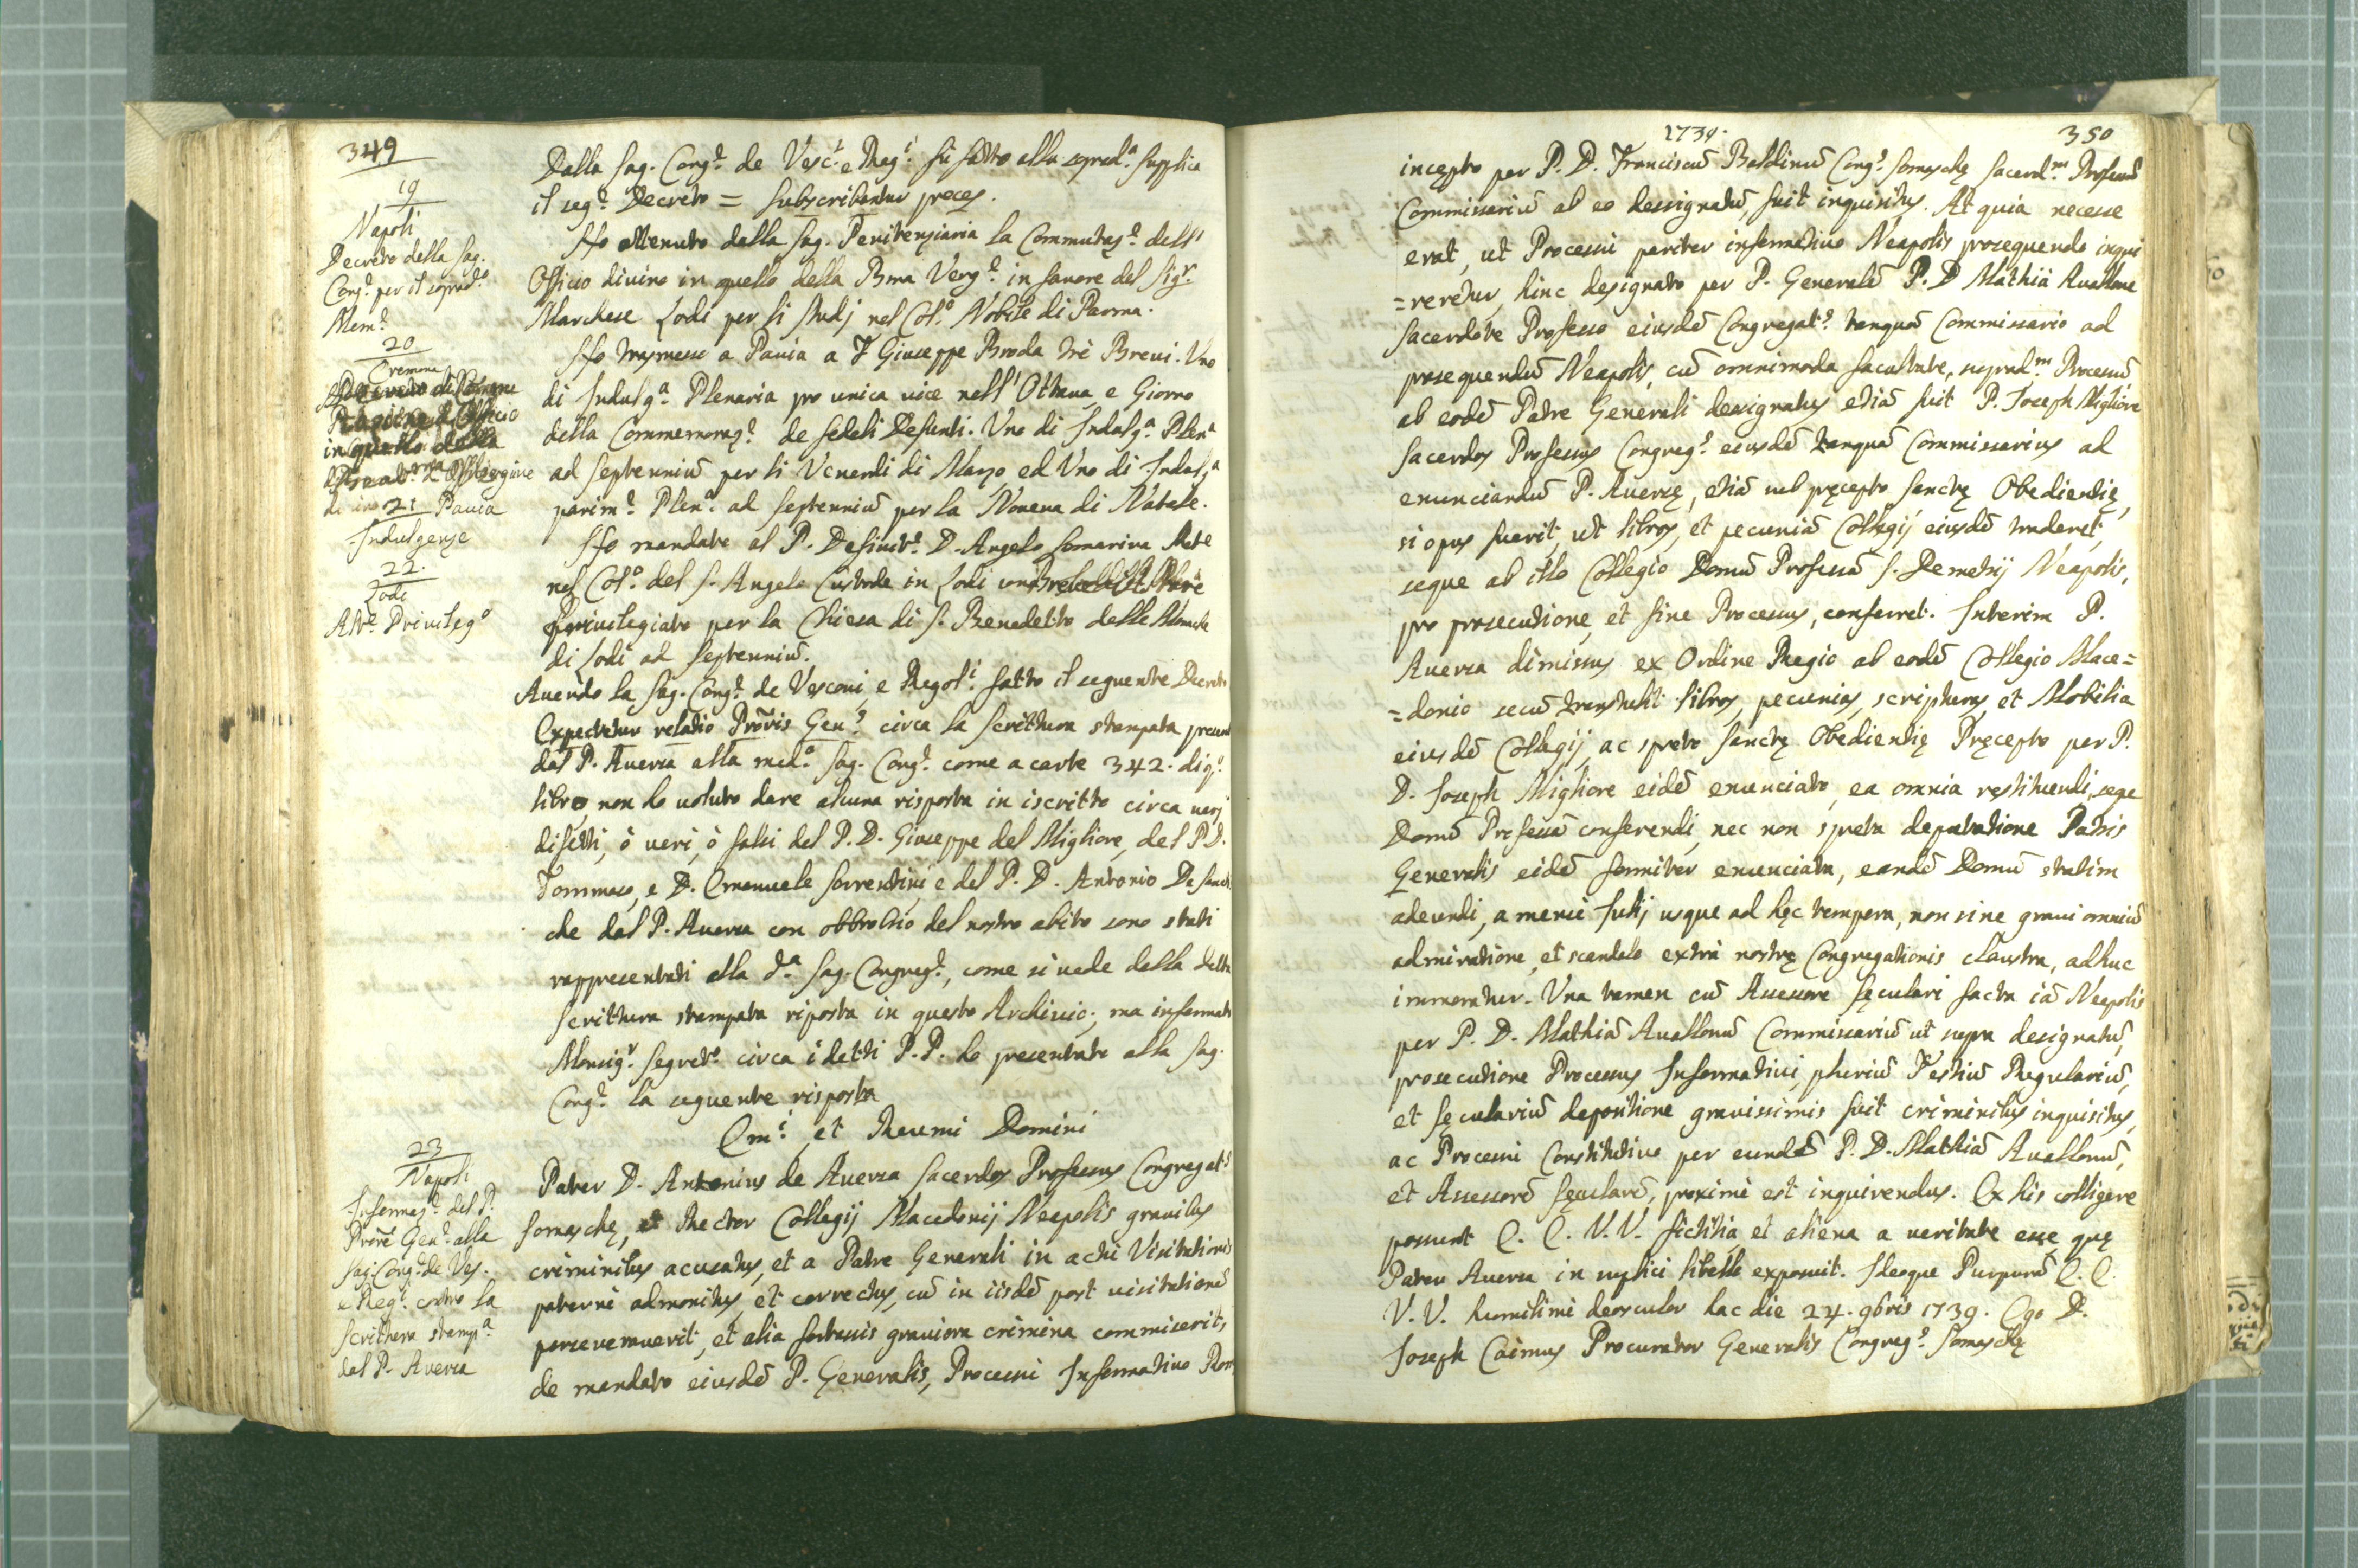 349
19
Napoli
Decreto della Sag.
Cong.e per il soprad.o
Mem.e
20
Cremona
21 Pavia
Indulgenze
22.
Lodi
Alt.e Privileg.o
23
Napoli
Informaz.e del P.
Prore Gen.e alla
Sag. Cong.e de Ves.
e Reg.i contro la
scrittura stamp.a
del P. Aversa
Dalla Sag. Cong.e de Vesc.i e Reg.i fù fatto alla soprad.a supplica
il seg.e Decreto = Subscribantur preces.
Hò ottenuto dalla Sag. Penitenziaria la Commutaz.e dell'
Officio divino in quello della Bma Verg.e in favore del Sig.r
Marchese Lodi per li studj nel Col.o Nobile di Parma.
Hò trasmesso a Pavia a F Giuseppe Broda trè Brevi. Uno
di Indulg.a Plenaria pro unica vice nell'Ottava, e Giorno
della Commemoraz.e de fedeli Defunti. Uno di Indulg.a Plen.a
ad septenniū per li Venerdi di Marzo, ed Uno di Indulg.a
parim.e Plen.a ad septenniū per la Novena di Natale.
Hò mandato al P. Definit.e D. Angelo Somariva
nel Col.o del S. Angelo Custode in Lodi
privilegiato per la Chiesa di S. Benedetto delle Monache
di Lodi ad septenniū.
Avendo la Sag. Cong.e de Vescovi, e Regol.i fatto il seguente Decreto
Expectetur relatio Prōris Gen.s circa la scrittura stampata
dal P. Aversa alla med.a Sag. Cong.e come a carte 342. di q.o
libro, non hò voluto dare alcuna risposta in iscritto circa varj
difetti, ò veri, ò falsi del P. D. Giuseppe del Migliore, del P. D.
Tommaso, e D. Emanuele Sorrentini e del P. D. Antonio De
che dal P. Aversa con obbrobrio del nostro abito sono stati
rappresentati alla d.a Sag. Congreg.e, come si vede dalla detta
scrittura stampata riposta in questo Archivio; ma informato
Monsig.r Segret.o circa i detti P.P. hò presentato alla Sag.
Cong.e la seguente risposta
Em.i et Revmi Domini
Pater D. Antonius de Aversa Sacerdos Professus Congregat.s
Somaschę, et Rector Collegij Macedonij Neapolis gravibus
criminibus acusatus, et a Patre Generali in actu Visitationis
paternè admonitus, et correctus, cū in iisdē post visitationē
perseveraverit, et alia fortassis graviora crimina commiserit,
de mandato eiusdē P. Generalis, Processu Informativo
1739.
350
incępto per P. D. Franciscū Baldinū Cong.s Somaschę Sacerd.m Professū
Commissariū ab eo dessignatū, fuit inquisitus. At quia necesse
erat, ut Processu pariter informativo Neapolis prosequendo inqui
=reretur, hinc designato per P. Generalē P. D Mathia Avallone
Sacerdote Professo eiusdē Congregat.s tanquā Commissario ad
prosequendū Neapolis, cū omnimoda facultate, suprad.m Processū
ab eodē Patre Generali dessignatus etiā fuit P. Joseph Migliore
Sacerdos Professus Congreg.s eiusdē tanquā Commissarius ad
enunciandū P. Aversę, etiā sub pręcepto Sanctę Obedientię,
si opus fuerit, ut libros, et pecuniā Collegij eiusdē traderet,
seque ab illo Collegio Domū Professā S. Demetrij Neapolis,
pro prosecutione, et fine Processus, conferret. Interim P.
Aversa dimissus ex Ordine Regio ab eodē Collegio Mace=
=donio secū transtulit libros, pecunias, scripturas, et Mobilia
eiusdē Collegij, ac spreto Sanctę Obedientię Pręcepto per P.
D. Joseph Migliore eidē enunciato, ea omnia restituendi, seqe
Domū Professā conferendi, nec non spreta deputatione Patris
Generalis eidē formiter enunciata, eandē Domū statim
adeundi, a mense Julij usque ad hęc tempora, non sine gravi omniū
admiratione, et scandalo extra nostrę Congregationis claustra, adhuc
immoratur. Una tamen cū Assessore sęculari facta iā Neapolis
per P. D. Mathiā Avallonū Commissariū ut supra designatū,
prosecutione Processus Informativi, pluriū Testiū Regulariū,
et sęculariū depositione gravissimis fuit criminibus inquisitus,
ac Processu Constitutivo per eundē P. D. Mathiā Avallonū,
et Assessorē sęcularē, proximè est inquirendus. Ex his colligere
possunt E. E. V. V. fictitia, et aliena a veritate esse quę
Pater Aversa in supplici libello exposuit. Ideoque Purpurā E. E.
V. V. humilimè deosculor hac die 24. 9bris 1739. Ego D.
Joseph Caimus Procurator Generalis Congreg.s Somaschę